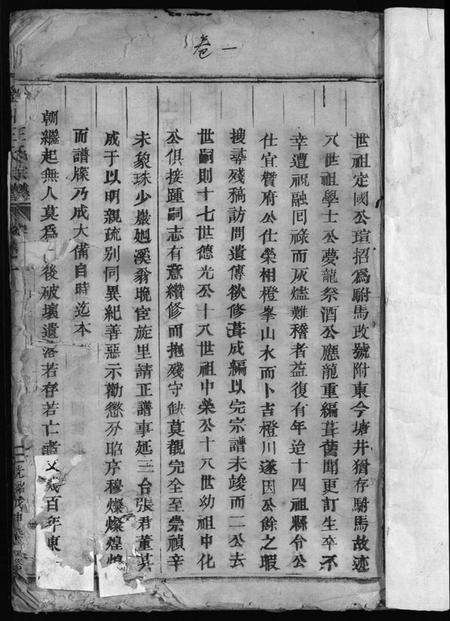 卷一
世祖定國公瑄招為駙馬改號附東今塘井猶存駙馬故迹
八世祖學士公夢龍祭酒公應龍重編葺舊聞更訂生卒不
幸遭祝融回祿而灰燼難稽者益復有年迨十四祖縣令公
仕宦贊府公仕榮相橙峯山水而卜吉橙川遂因公餘之暇
搜尋殘稿訪問遺傳欲修葺成編以完宗譜未竣而二公去
世嗣則十七世德光公十八世祖中榮公十八世幼祖中化
公俱接踵嗣志有意纘修而抱殘守缺莫覩完全至崇禎辛
未象珠少巖廻溪翁晚宦旋里請正譜事延三台張君董其
成于以明親疏別同異紀善惡示勸懲分昭序穆燦燦煌煌
而譜牒乃成大備自時迄本
朝繼起無人莫為後破壞遺落若存若亡者又幾百年東